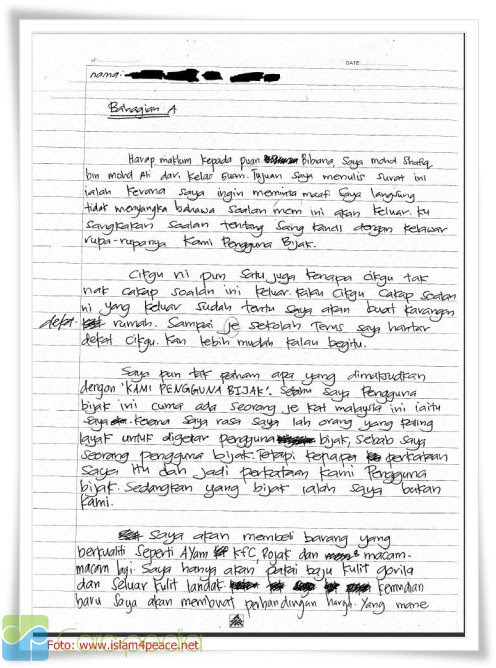 DATE:
nama:
Bahagian A
Harap maklum kepada puan Bibiana, Saya mohd Shafiq
bin mohd Ali dari kelas 5 um. Tujuan saya menulis surat ini
ialah kerana saya ingin meminta maaf. Saya langsung
tidak menyangka bahawa soalan mcm ini akan keluar. ku
sangkakan soalan tentang Sang kancil dengan kelawar
rupa-rupanya Kami Pengguna Bijak.
Cikgu ni pun satu juga kenapa cikgu tak
nak cakap soalan ini keluar. Kalau Cikgu cakap soalan
ni yang keluar sudah tentu saya akan buat karangan
dekat rumah. Sampai je sekolah Terus saya hantar
dekat Cikgu. Kan lebih mudah kalau begitu.
Saya pun tak paham apa yang dimaksudkan
dengan 'KAMI PENGGUNA BIJAK'. Setahu saya Pengguna
bijak ini cuma ada seorang je kat malaysia ini iaitu
saya. Kerana saya rasa saya lah orang yang paling
layak untuk digelar pengguna bijak, sebab saya
seorang pengguna bijak. Tetapi kenapa perkataan
saya itu dah jadi perkataan Kami Pengguna
bijak. Sedangkan yang bijak ialah saya bukan
kami.
Saya akan membeli barang yang
berkualiti seperti AYam KFC, Rojak dan macam-
macam lagi. Saya hanya akan pakai baju kulit gorila
dan seluar kulit landak kemudian
baru saya akan membuat perbandingan harga. Yang mane
Foto: www.islam4peace.net